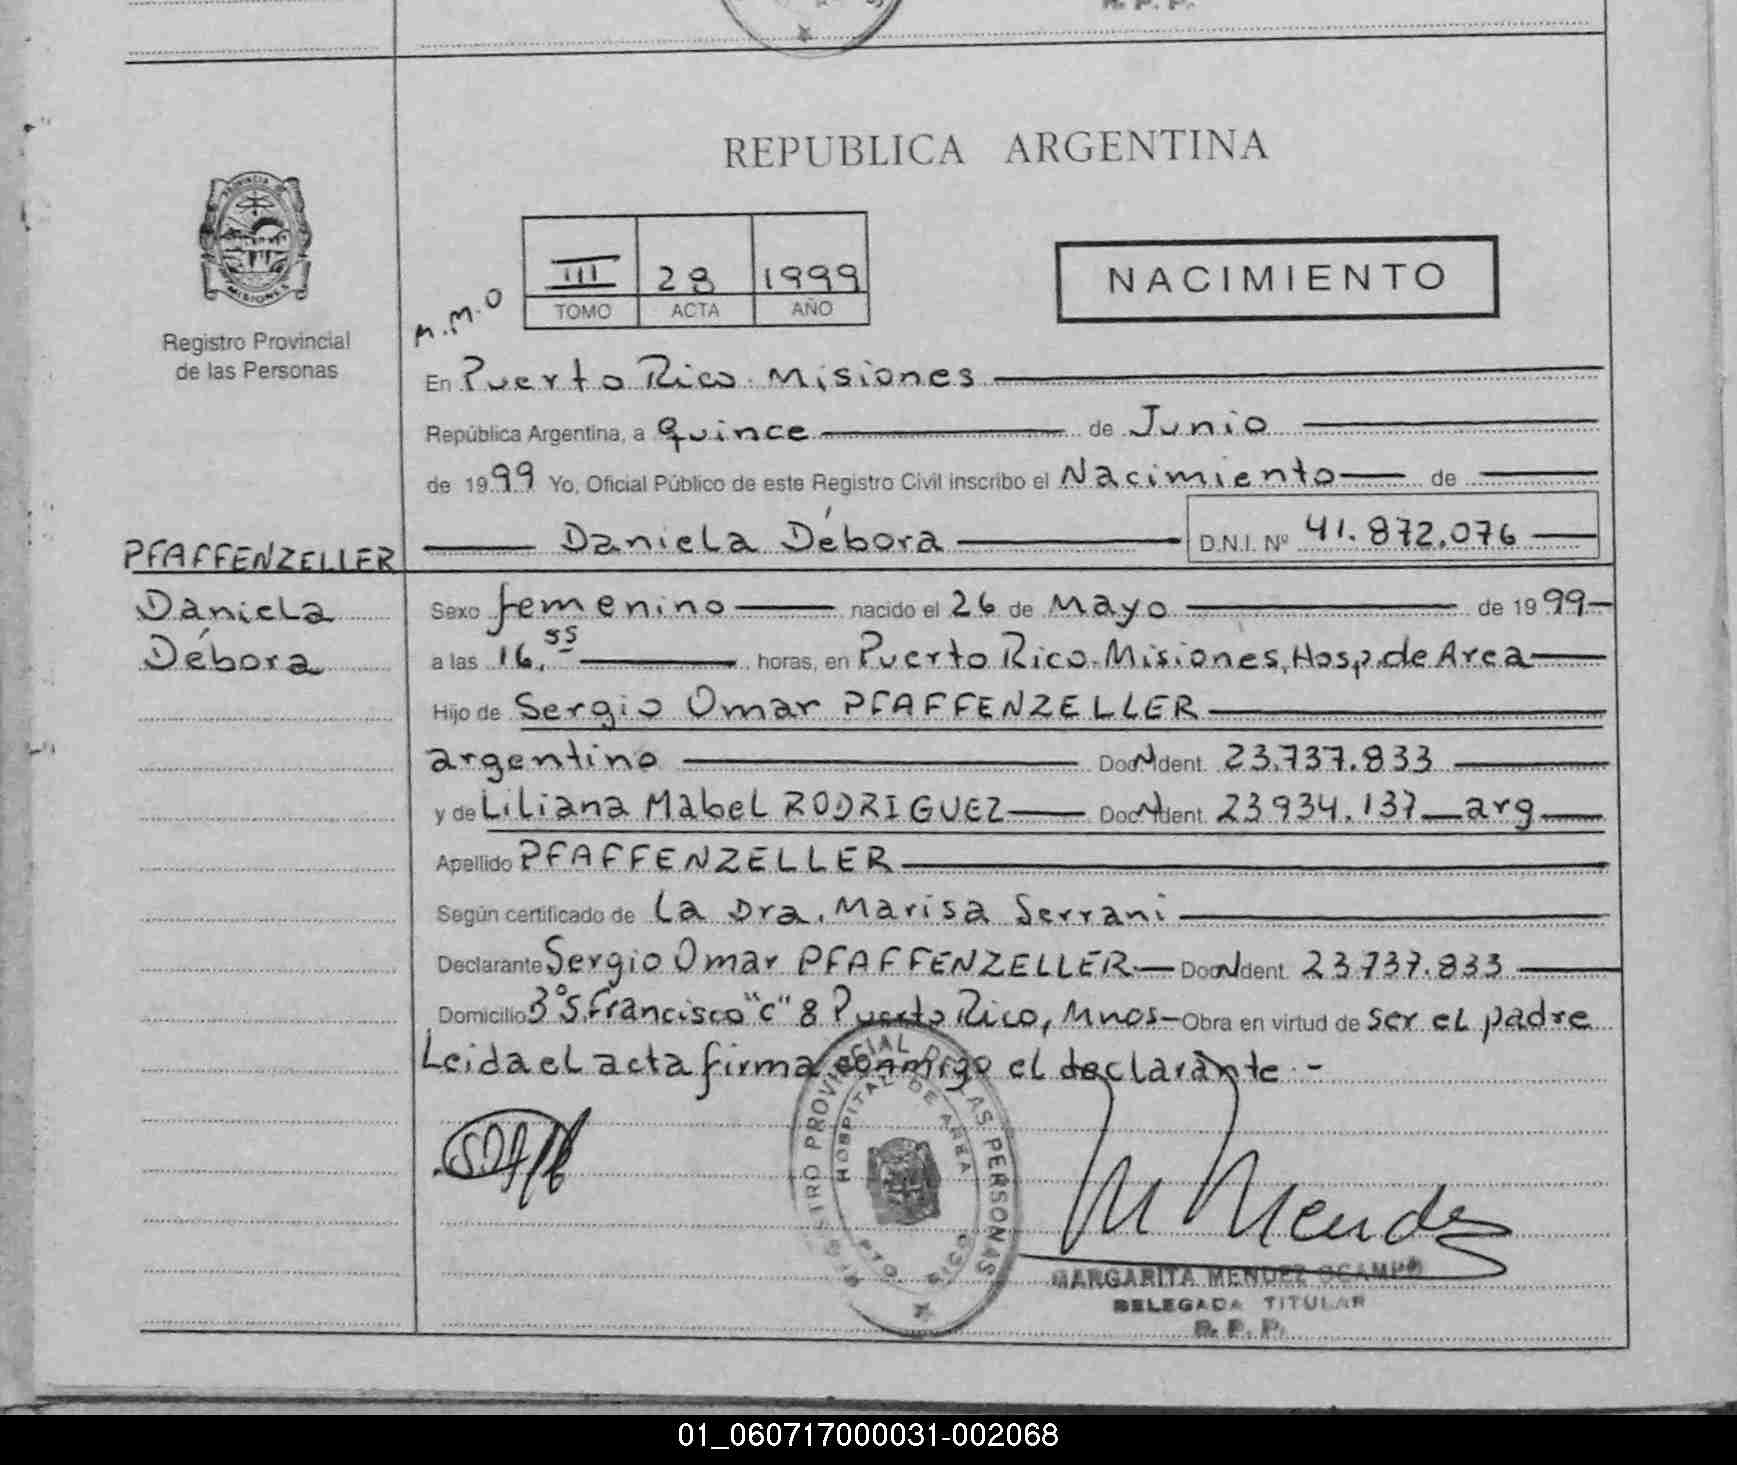 R. P. P.
REPUBLICA ARGENTINA
PROVINCIA DE
MISIONES
Registro Provincial
de las Personas
M.M.O
III 28 1999
TOMO ACTA AÑO
NACIMIENTO
En Puerto Rico. Misiones
República Argentina, a quince de Junio
de 1999 Yo, Oficial Público de este Registro Civil inscribo el Nacimiento de
Daniela Débora D.N.I. Nº 41.872.076
PFAFFENZELLER
Daniela
Débora
Sexo femenino nacido el 26 de Mayo de 1999
a las 16,55 horas, en Puerto Rico. Misiones, Hosp. de Area
Hijo de Sergio Omar PFAFFENZELLER
argentino DocNident. 23.737.833
y de Liliana Mabel RODRIGUEZ DocNident. 23934.137 arg
Apellido PFAFFENZELLER
Según certificado de La Dra. Marisa Serrani
Declarante Sergio Omar PFAFFENZELLER DocNident. 23737.833
Domicilio Bº S. Francisco "C" 8 Puerto Rico, Mnos- Obra en virtud de ser el padre
Leida el acta firma conmigo el declarante.-
REGISTRO PROVINCIAL DE LAS PERSONAS
HOSPITAL DE AREA
PTO.
M Mendez
MARGARITA MENDEZ OCAMPO
DELEGADA TITULAR
R. P. P.
01_060717000031-002068